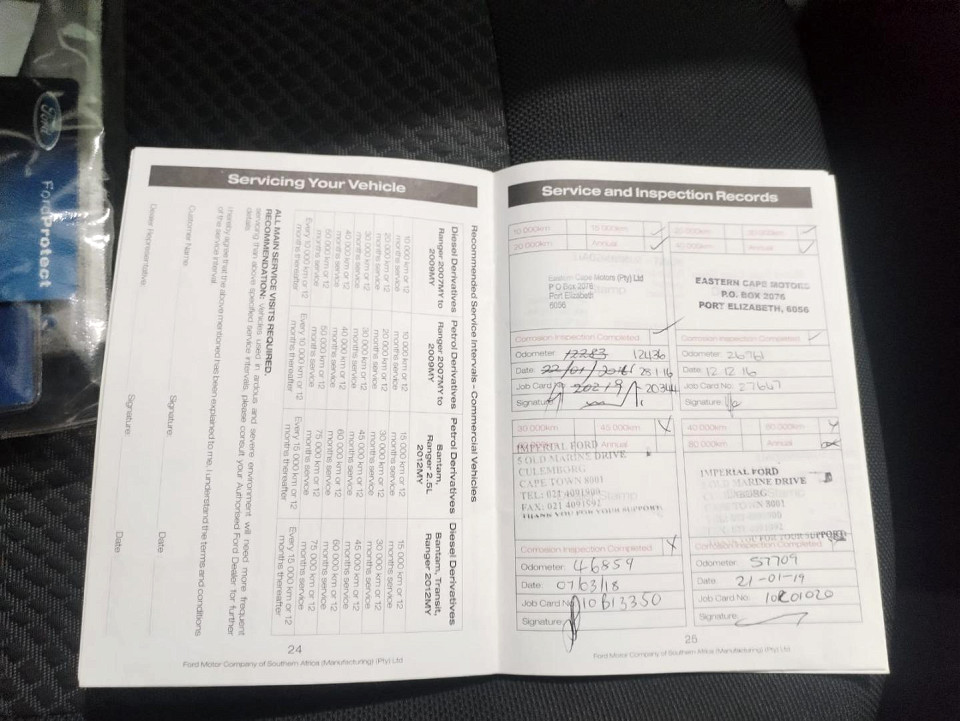 Ford
FordProtect
Servicing Your Vehicle
Recommended Service Intervals - Commercial Vehicles
Diesel Derivatives Ranger 2007MY to 2009MY
10 000 km or 12 months service
20 000 km or 12 months service
30 000 km or 12 months service
40 000 km or 12 months service
50 000 km or 12 months service
Every 10 000 km or 12 months thereafter
Petrol Derivatives Ranger 2007MY to 2009MY
10 000 km or 12 months service
20 000 km or 12 months service
30 000 km or 12 months service
40 000 km or 12 months service
50 000 km or 12 months service
Every 10 000 km or 12 months thereafter
Petrol Derivatives Bantam, Ranger 2.5L 2012MY
15 000 km or 12 months service
30 000 km or 12 months service
45 000 km or 12 months service
60 000 km or 12 months service
75 000 km or 12 months service
Every 15 000 km or 12 months thereafter
Diesel Derivatives Bantam, Transit, Ranger 2012MY
15 000 km or 12 months service
30 000 km or 12 months service
45 000 km or 12 months service
60 000 km or 12 months service
75 000 km or 12 months service
Every 15 000 km or 12 months thereafter
ALL MAIN SERVICE VISITS REQUIRED.
RECOMMENDATION: Vehicles used in arduous and severe environment will need more frequent
servicing than above specified service intervals, please consult your Authorised Ford Dealer for further
details.
I hereby agree that the above mentioned has been explained to me. I understand the terms and conditions
of the service interval.
Customer Name: Signature: Date:
Dealer Representative: Signature: Date:
24
Ford Motor Company of Southern Africa (Manufacturing) (Pty) Ltd
Service and Inspection Records
10 000km 15 000km
20 000km Annual
Eastern Cape Motors (Pty) Ltd
P O Box 2076
Port Elizabeth
6056
Corrosion Inspection Completed
Odometer: 12283 12436
Date: 22/01/2016 28 1 16
Job Card 20219 20344
Signature
Annual
EASTERN CAPE MOTORS
P.O. BOX 2076
PORT ELIZABETH, 6056
Corrosion Inspection Completed
Odometer: 26761
Date: 12 12 16
Job Card No: 27647
Signature:
30 000km 45 000km
Annual
IMPERIAL FORD
5 OLD MARINE DRIVE
CULEMBORG
CAPE TOWN 8001
TEL: 021 4091900
FAX: 021 4091592
THANK YOU FOR YOUR SUPPORT
Corrosion Inspection Completed
Odometer: 46859
Date: 07/03/18
Job Card No 10613350
Signature:
40 000km 60 000km
80 000km Annual
IMPERIAL FORD
OLD MARINE DRIVE
8001
THANK YOU FOR YOUR SUPPORT
Corrosion Inspection Completed
Odometer: 57709
Date: 21-01-19
Job Card No:
Signature:
25
Ford Motor Company of Southern Africa (Manufacturing) (Pty) Ltd